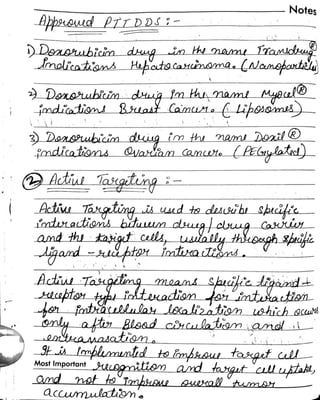 Notes
Approved PTTDDS :-
1) Doxorubicin drug in the name Transdrug®
Indications Hepatocarcinoma. (Nanoparticle)
2) Doxorubicin drug In the name Myocet®
indications Breast Cancer. ( Liposomes)
3) Doxorubicin drug in the name Doxil®
indications Ovarian Cancer. (PEGylated)
② Active Targeting :-
Active Targeting is used to describe specific
interactions between drug/drug carrier
and the target cells, usually through specific
ligand - receptor interactions.
Active Targeting means specific ligand +
receptor type interaction for interaction
for intracellular localization which occurs
only after Blood circulation and
extravasation.
It is Implemented to improve target cell
Most Important recognition and target cell uptake,
and not to improve overall tumor
accumulation.